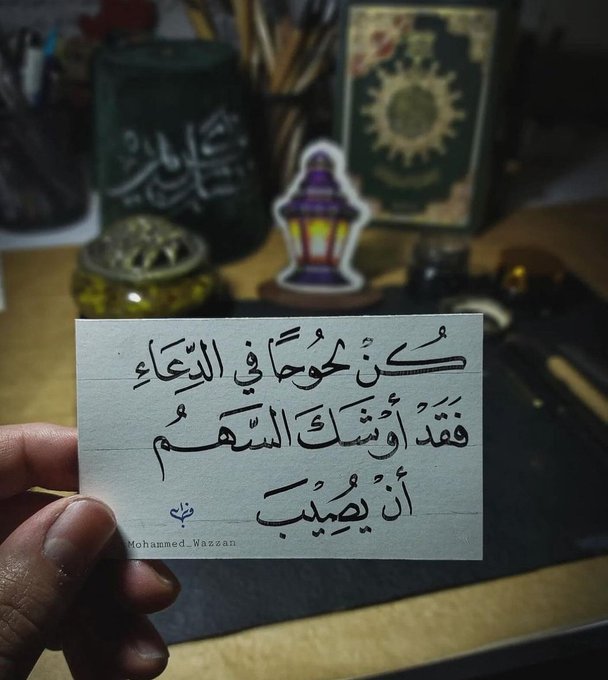 كُنْ لحُوحًا في الدِّعَاءِ
فَقَدْ أوْشَكَ السَّهَمُ
أنْ يُصِيْبَ
Mohammed_Wazzan